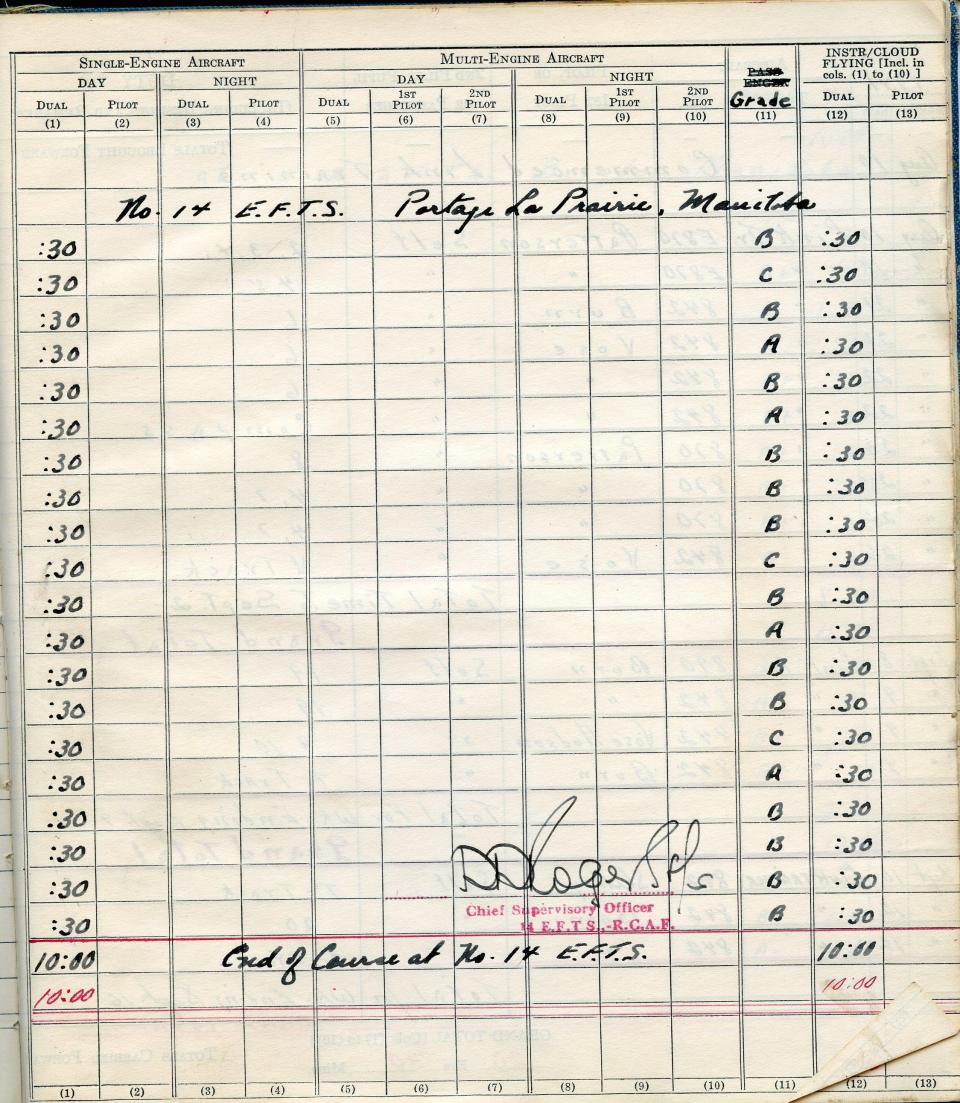 SINGLE-ENGINE AIRCRAFT MULTI-ENGINE AIRCRAFT PASSENGER INSTR/CLOUD FLYING [Incl. in cols. (1) to (10) ]
DAY NIGHT DAY NIGHT Grade
DUAL PILOT DUAL PILOT DUAL 1ST PILOT 2ND PILOT DUAL 1ST PILOT 2ND PILOT DUAL PILOT
(1) (2) (3) (4) (5) (6) (7) (8) (9) (10) (11) (12) (13)
No. 14 E.F.T.S. Portage La Prairie, Manitoba
:30 B :30
:30 C :30
:30 B :30
:30 A :30
:30 B :30
:30 A :30
:30 B :30
:30 B :30
:30 B :30
:30 C :30
:30 B :30
:30 A :30
:30 B :30
:30 B :30
:30 C :30
:30 A :30
:30 B :30
:30 B :30
:30 B :30
Chief Supervisory Officer
14 E.F.T S.,-R.C.A.F.
:30 B :30
10:00 End of Course at No. 14 E.F.T.S. 10:00
10:00 10:00
(1) (2) (3) (4) (5) (6) (7) (8) (9) (10) (11) (12) (13)